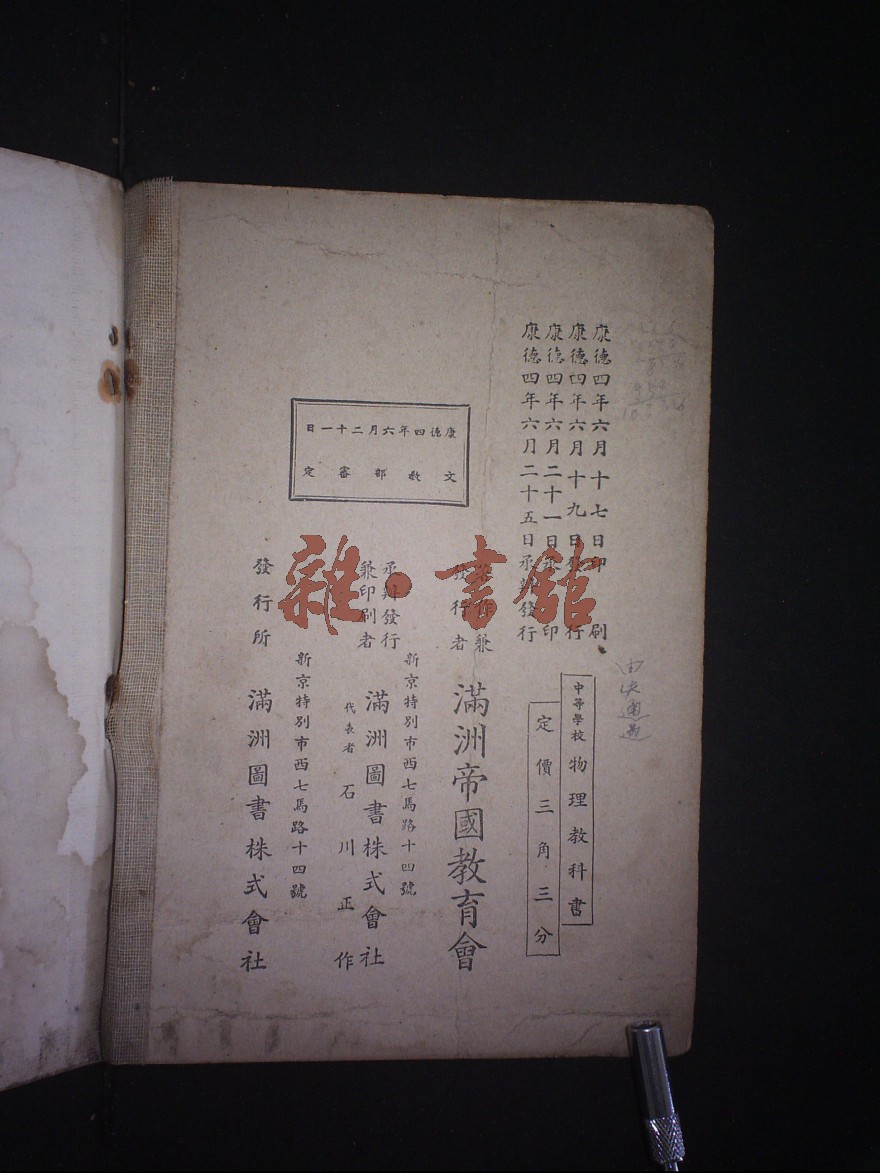 康德四年六月十七日印刷
康德四年六月十九日發行
康德四年六月二十一日承印
康德四年六月二十五日承辦發行
中等學校 物理教科書
定價三角三分
康德四年六月二十一日
文教部審定
著作兼
發行者
滿洲帝國教育會
新京特別市西七馬路十四號
承辦發行
兼印刷者
滿洲圖書株式會社
代表者 石川正作
新京特別市西七馬路十四號
發行所 滿洲圖書株式會社
雜·書館